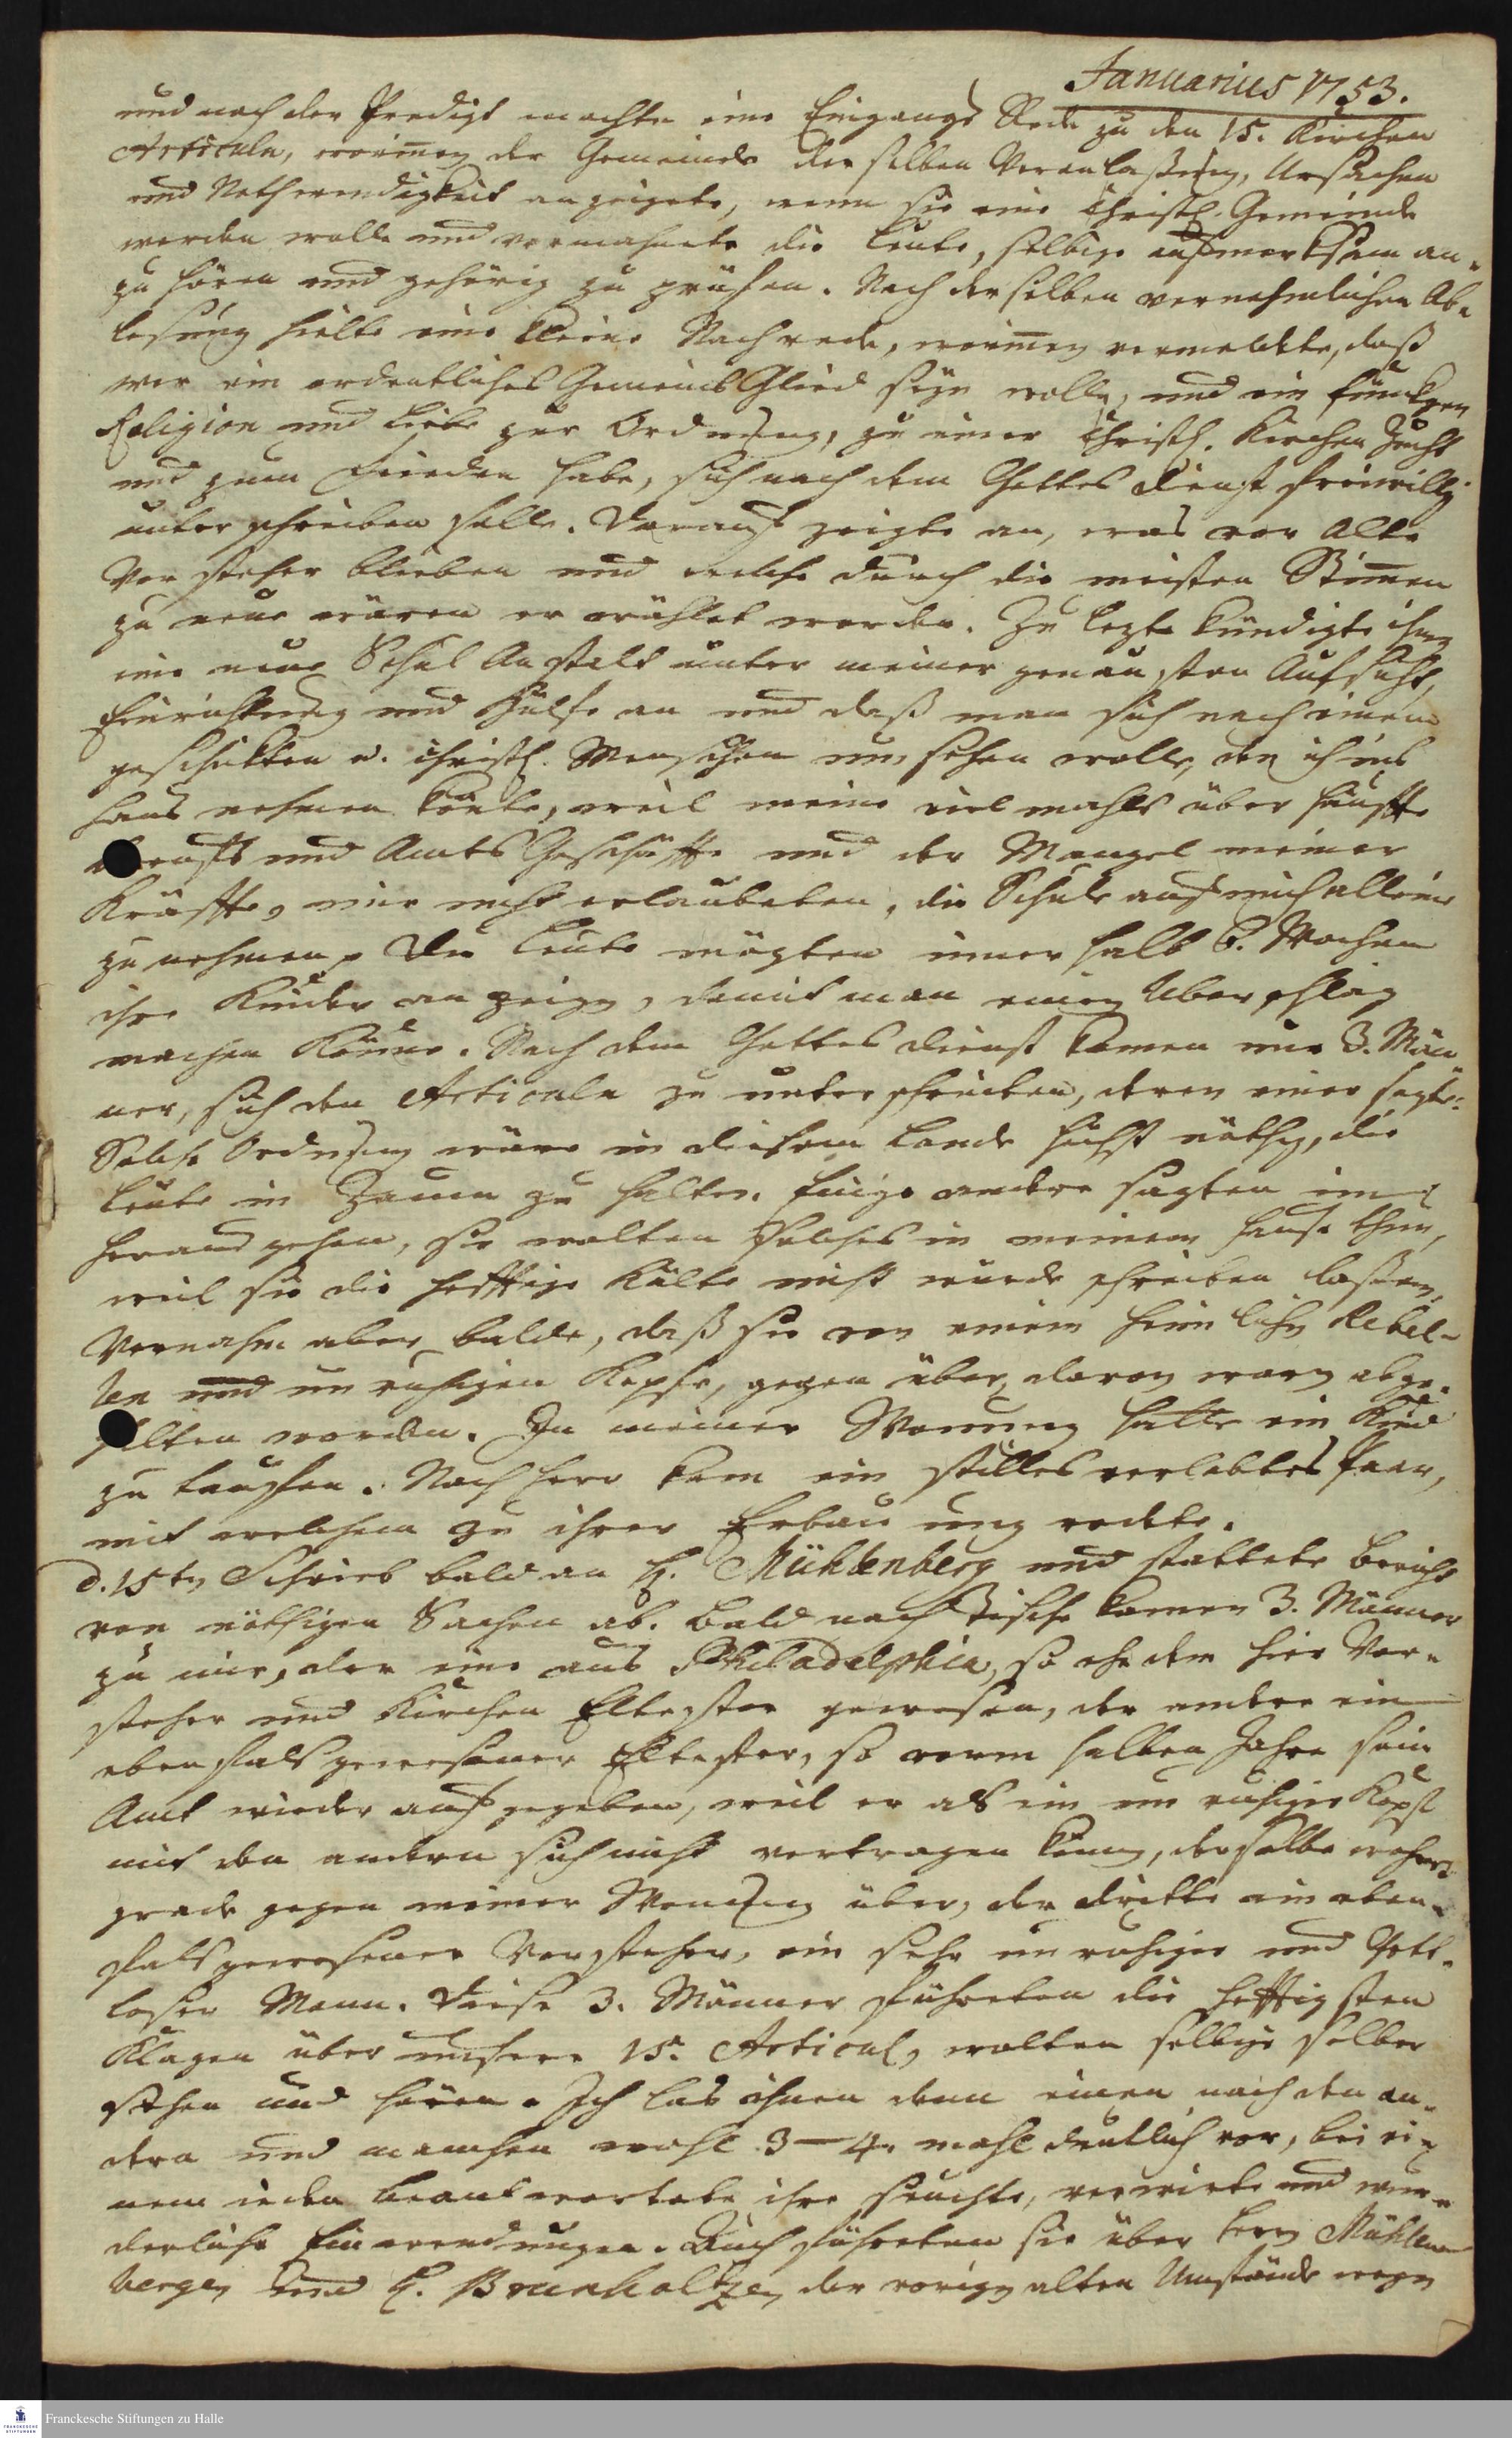 Januarius 1753.
und nach der Predigt machte eine Eingangs Rede zu den 15. Kirchen
Articuln, worinnen der Gemeinde derselben Veranlaßung, Ursachen
und Nothwendigkeit anzeigete, wenn sie eine Christl. Gemeinde
werden wolle und vermahnete die Leute, selbige aufmerksam an-
zu hören und gehörig zu prüfen. Nach derselben vernehmlichen Ab-
lesung hielte eine kleine Nachrede, worinnen vermeldete, daß
wer ein ordentliches Gemeins Glied seyn wolle, und ein füncklgen
Religion und Liebe zur Ordnung, zu einer Christl. Kirchen Zucht
und zum Frieden habe, sich nach dem Gottes dienst freiwillig
unter schreiben solle. Darauf zeigte an, was vor Alte
Vorsteher blieben und welche durch die meisten Stimen
zu neue wären erwählet worden. Zu lezte kündigte ihnen
eine neue Schul Anstalt unter meiner genausten Aufsicht,
Einrichtung und Hülfe an und daß man sich nach einem
geschickten u. christl. Menschen um sehen wolle, den ich ins
Haus nehmen könte, weil meine vielmahls über häuffte
und Amts Geschäffte und der Mangel meiner
Kräffte, mir nicht erlaubeten, die Schule auf mich alleine
zu nehmen. Die Leute mögten inner halb Wochen
ihre Kinder an zeigen, damit man einen Uberschlag
machen könne. Nach dem Gottes dienst kamen nur 3. Män
ner, sich den Articuln zu unterschreiben, deren einer sagte:
Solche Ordnung wäre in diesem Lande höchst nöthig, die
Leute in Zaum zu halten. Einige andere sagten im
heraus gehen, sie wolten solches in meinem Hause thun,
weil sie die hefftige Kälte nicht würde schreiben laßen,
Vernahm aber balde, daß sie von einem heimlichen Rebel-
len und unruhigen Kopfe, gegen über, davon waren abge-
halten worden. In meiner Wonung hatte ein Kind
zu tauffen. Nach hero kam ein stilles verlobtes Paar,
mit welchem zu ihrer Erbauung redete.
d. 15ten Schrieb bald an H. Mühlenberg und stattete Bericht
von nöthigen Sachen ab. Bald nach Tische kamen 3. Männer
zu mir, der eine aus Philadelphia, so ehedem hier Vor-
steher und Kirchen Eltester gewesen, der andere ein
ebenfals gewesener Eltester, so vorm halben Jahre sein
Amt wieder auf gegeben, weil er als ein unruhiger Kopf
mit den andern sich nicht vertragen könen, derselbe wohnet
grade gegen meiner Wonung über, der dritte ein eben-
fals gewesener Vorsteher, ein sehr unruhiger und Gott-
loser Mann. Diese 3. Männer führeten die hefftigsten
Klagen über unsere 15. Articul, wolten selbige selber
sehen und hören. Ich las ihnen denn einen nach den an-
dern und manchen wohl 3 - 4. mahl deutlich vor, bei ei-
nem ieden beantwortete ihre seuchte, verwirte und wun-
derliche Einwendungen. Auch führeten sie über Herrn Mühlen-
bergen und H. Brunholtzen, der vorigen alten Umstände wegen
Franckesche Stiftungen zu Halle